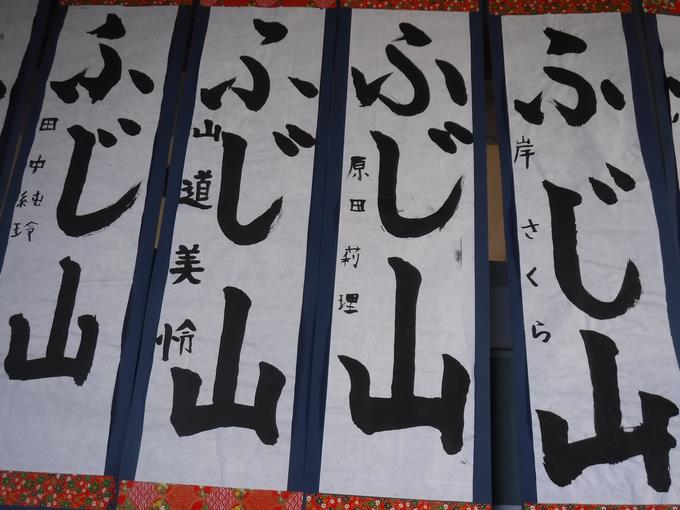 ふじ山
岸さくら
ふじ山
原田莉理
ふじ山
山道美怜
ふじ山
田中純玲